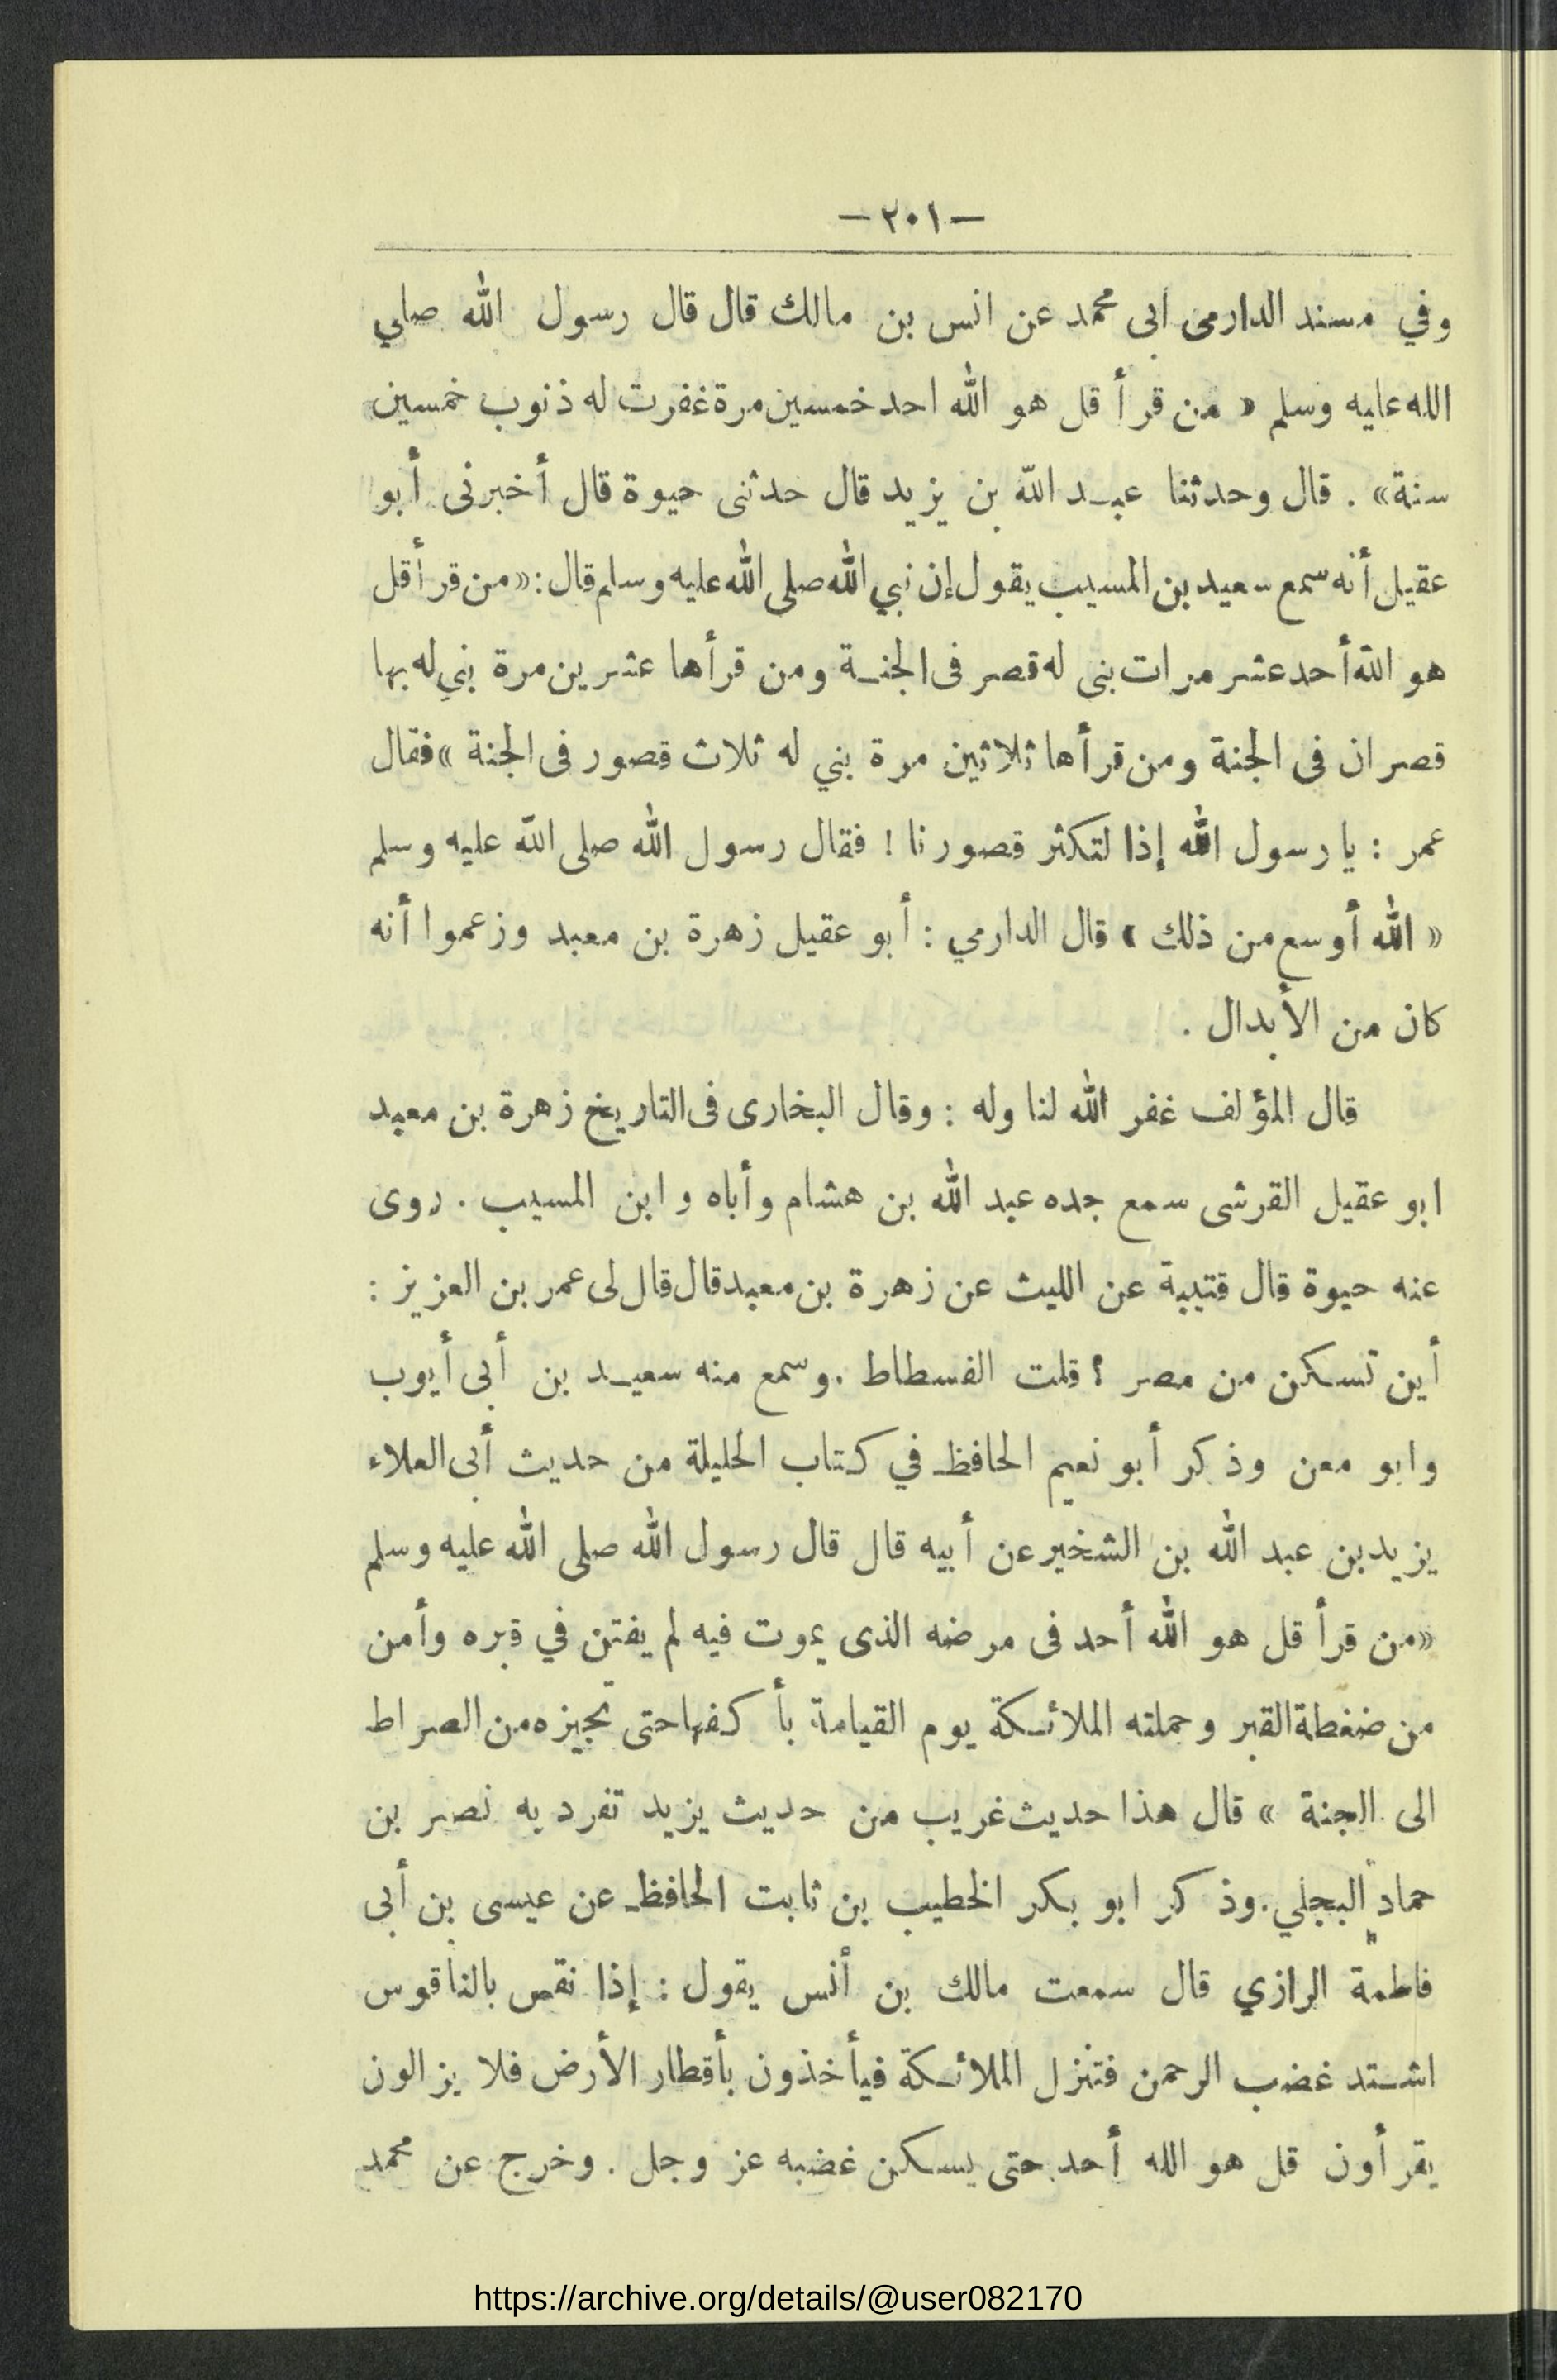 —٢٠١—
وفي مسند الدارمى ابى محمد عن انس بن مالك قال قال رسول الله صلي
الله عليه وسلم « من قرأ قل هو الله احد خمسين مرة غفرت له ذنوب خمسين
سنة» . قال وحدثنا عبد الله بن يزيد قال حدثنى حيوة قال أخبرنى أبو
عقيل أنه سمع سعيد بن المسيب يقول إن نبي الله صلى الله عليه وسلم قال : «من قرأ قل
هو الله أحد عشر مرات بنى له قصر فى الجنة ومن قرأها عشرين مرة بني له بها
قصران فى الجنة ومن قرأها ثلاثين مرة بني له ثلاث قصور فى الجنة » فقال
عمر : يا رسول الله إذا لتكثر قصورنا ! فقال رسول الله صلى الله عليه وسلم
« الله أوسع من ذلك » قال الدارمي : أبو عقيل زهرة بن معبد وزعموا أنه
كان من الأبدال .
قال المؤلف غفر الله لنا وله : وقال البخارى فى التاريخ زهرة بن معبد
ابو عقيل القرشى سمع جده عبد الله بن هشام وأباه وابن المسيب . روى
عنه حيوة قال قتيبة عن الليث عن زهرة بن معبد قال قال لى عمر بن العزيز :
أين تسكن من مصر ؟ قلت الفسطاط . وسمع منه سعيد بن أبى أيوب
وابو معن وذكر أبو نعيم الحافظ في كتاب الحليلة من حديث أبى العلاء
يزيد بن عبد الله بن الشخير عن أبيه قال قال رسول الله صلى الله عليه وسلم
«من قرأ قل هو الله أحد فى مرضه الذى يموت فيه لم يفتن في قبره وأمن
من ضغطة القبر وحملته الملائكة يوم القيامة بأكفها حتى تجيزه من الصراط
الى الجنة » قال هذا حديث غريب من حديث يزيد تفرد به نصر بن
حماد البجلي . وذكر ابو بكر الخطيب بن ثابت الحافظ عن عيسى بن أبى
فاطمة الرازي قال سمعت مالك بن أنس يقول : إذا نقس بالناقوس
اشتد غضب الرحمن فتنزل الملائكة فيأخذون بأقطار الأرض فلا يزالون
يقرأون قل هو الله أحد حتى يسكن غضبه عز وجل . وخرج عن محمد
https://archive.org/details/@user082170